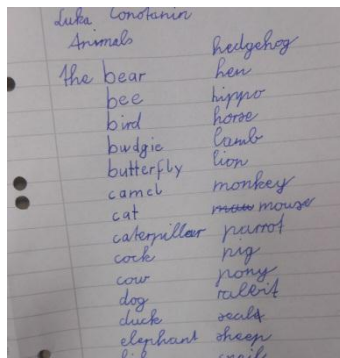 Luka
Animals
the bear
bee
bird
budgie
butterfly
camel
cat
caterpillar
cock
cow
dog
duck
elephant
hedgehog
hen
hippo
horse
lamb
lion
monkey
mouse
parrot
pig
pony
rabbit
seal
sheep